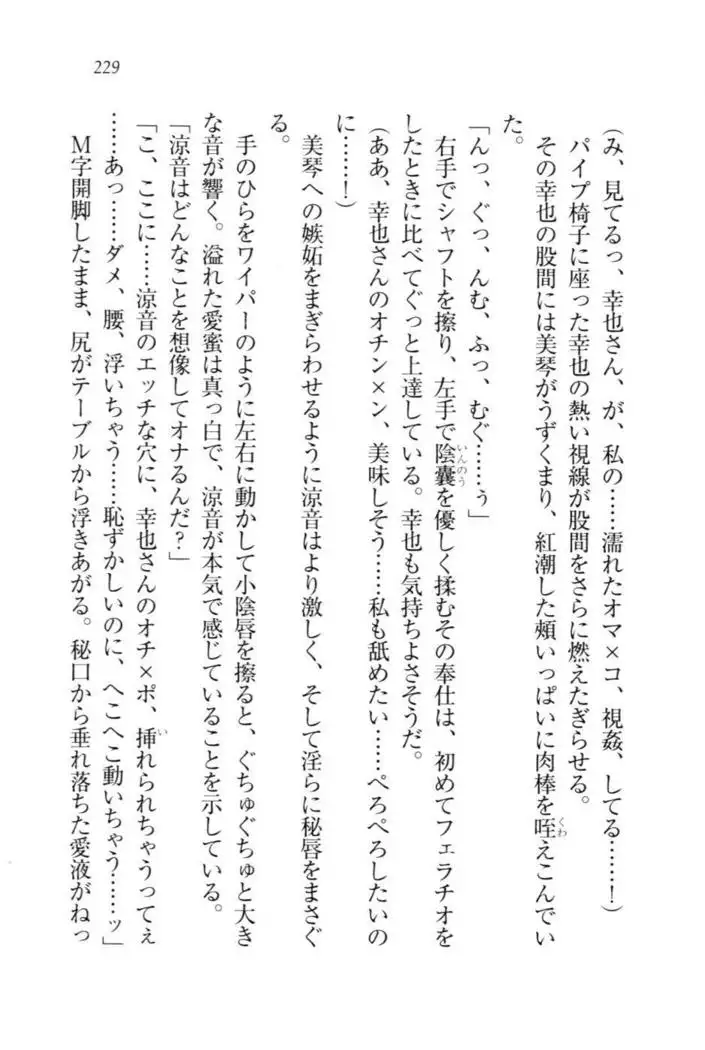 229
(み、見てるっ、幸也さん、が、私の……濡れたオマ×コ、視姦、してる……！)
パイプ椅子に座った幸也の熱い視線が股間をさらに燃えたぎらせる。
その幸也の股間には美琴がうずくまり、紅潮した頰いっぱいに肉棒を咥えこんでい
た。
「んっ、ぐっ、んむ、ふっ、むぐ……ぅ」
右手でシャフトを擦り、左手で陰嚢を優しく揉むその奉仕は、初めてフェラチオを
したときに比べてぐっと上達している。幸也も気持ちよさそうだ。
(ああ、幸也さんのオチン×ン、美味しそう……私も舐めたい……ぺろぺろしたいの
に……！)
美琴への嫉妬をまぎらわせるように涼音はより激しく、そして淫らに秘唇をまさぐ
る。
手のひらをワイパーのように左右に動かして小陰唇を擦ると、ぐちゅぐちゅと大き
な音が響く。溢れた愛蜜は真っ白で、涼音が本気で感じていることを示している。
「涼音はどんなことを想像してオナるんだ？」
「こ、ここに……涼音のエッチな穴に、幸也さんのオチ×ポ、挿れられちゃうってぇ
……あっ……ダメ、腰、浮いちゃう……恥ずかしいのに、へこへこ動いちゃう……ッ」
M字開脚したまま、尻がテーブルから浮きあがる。秘口から垂れ落ちた愛液がねっ